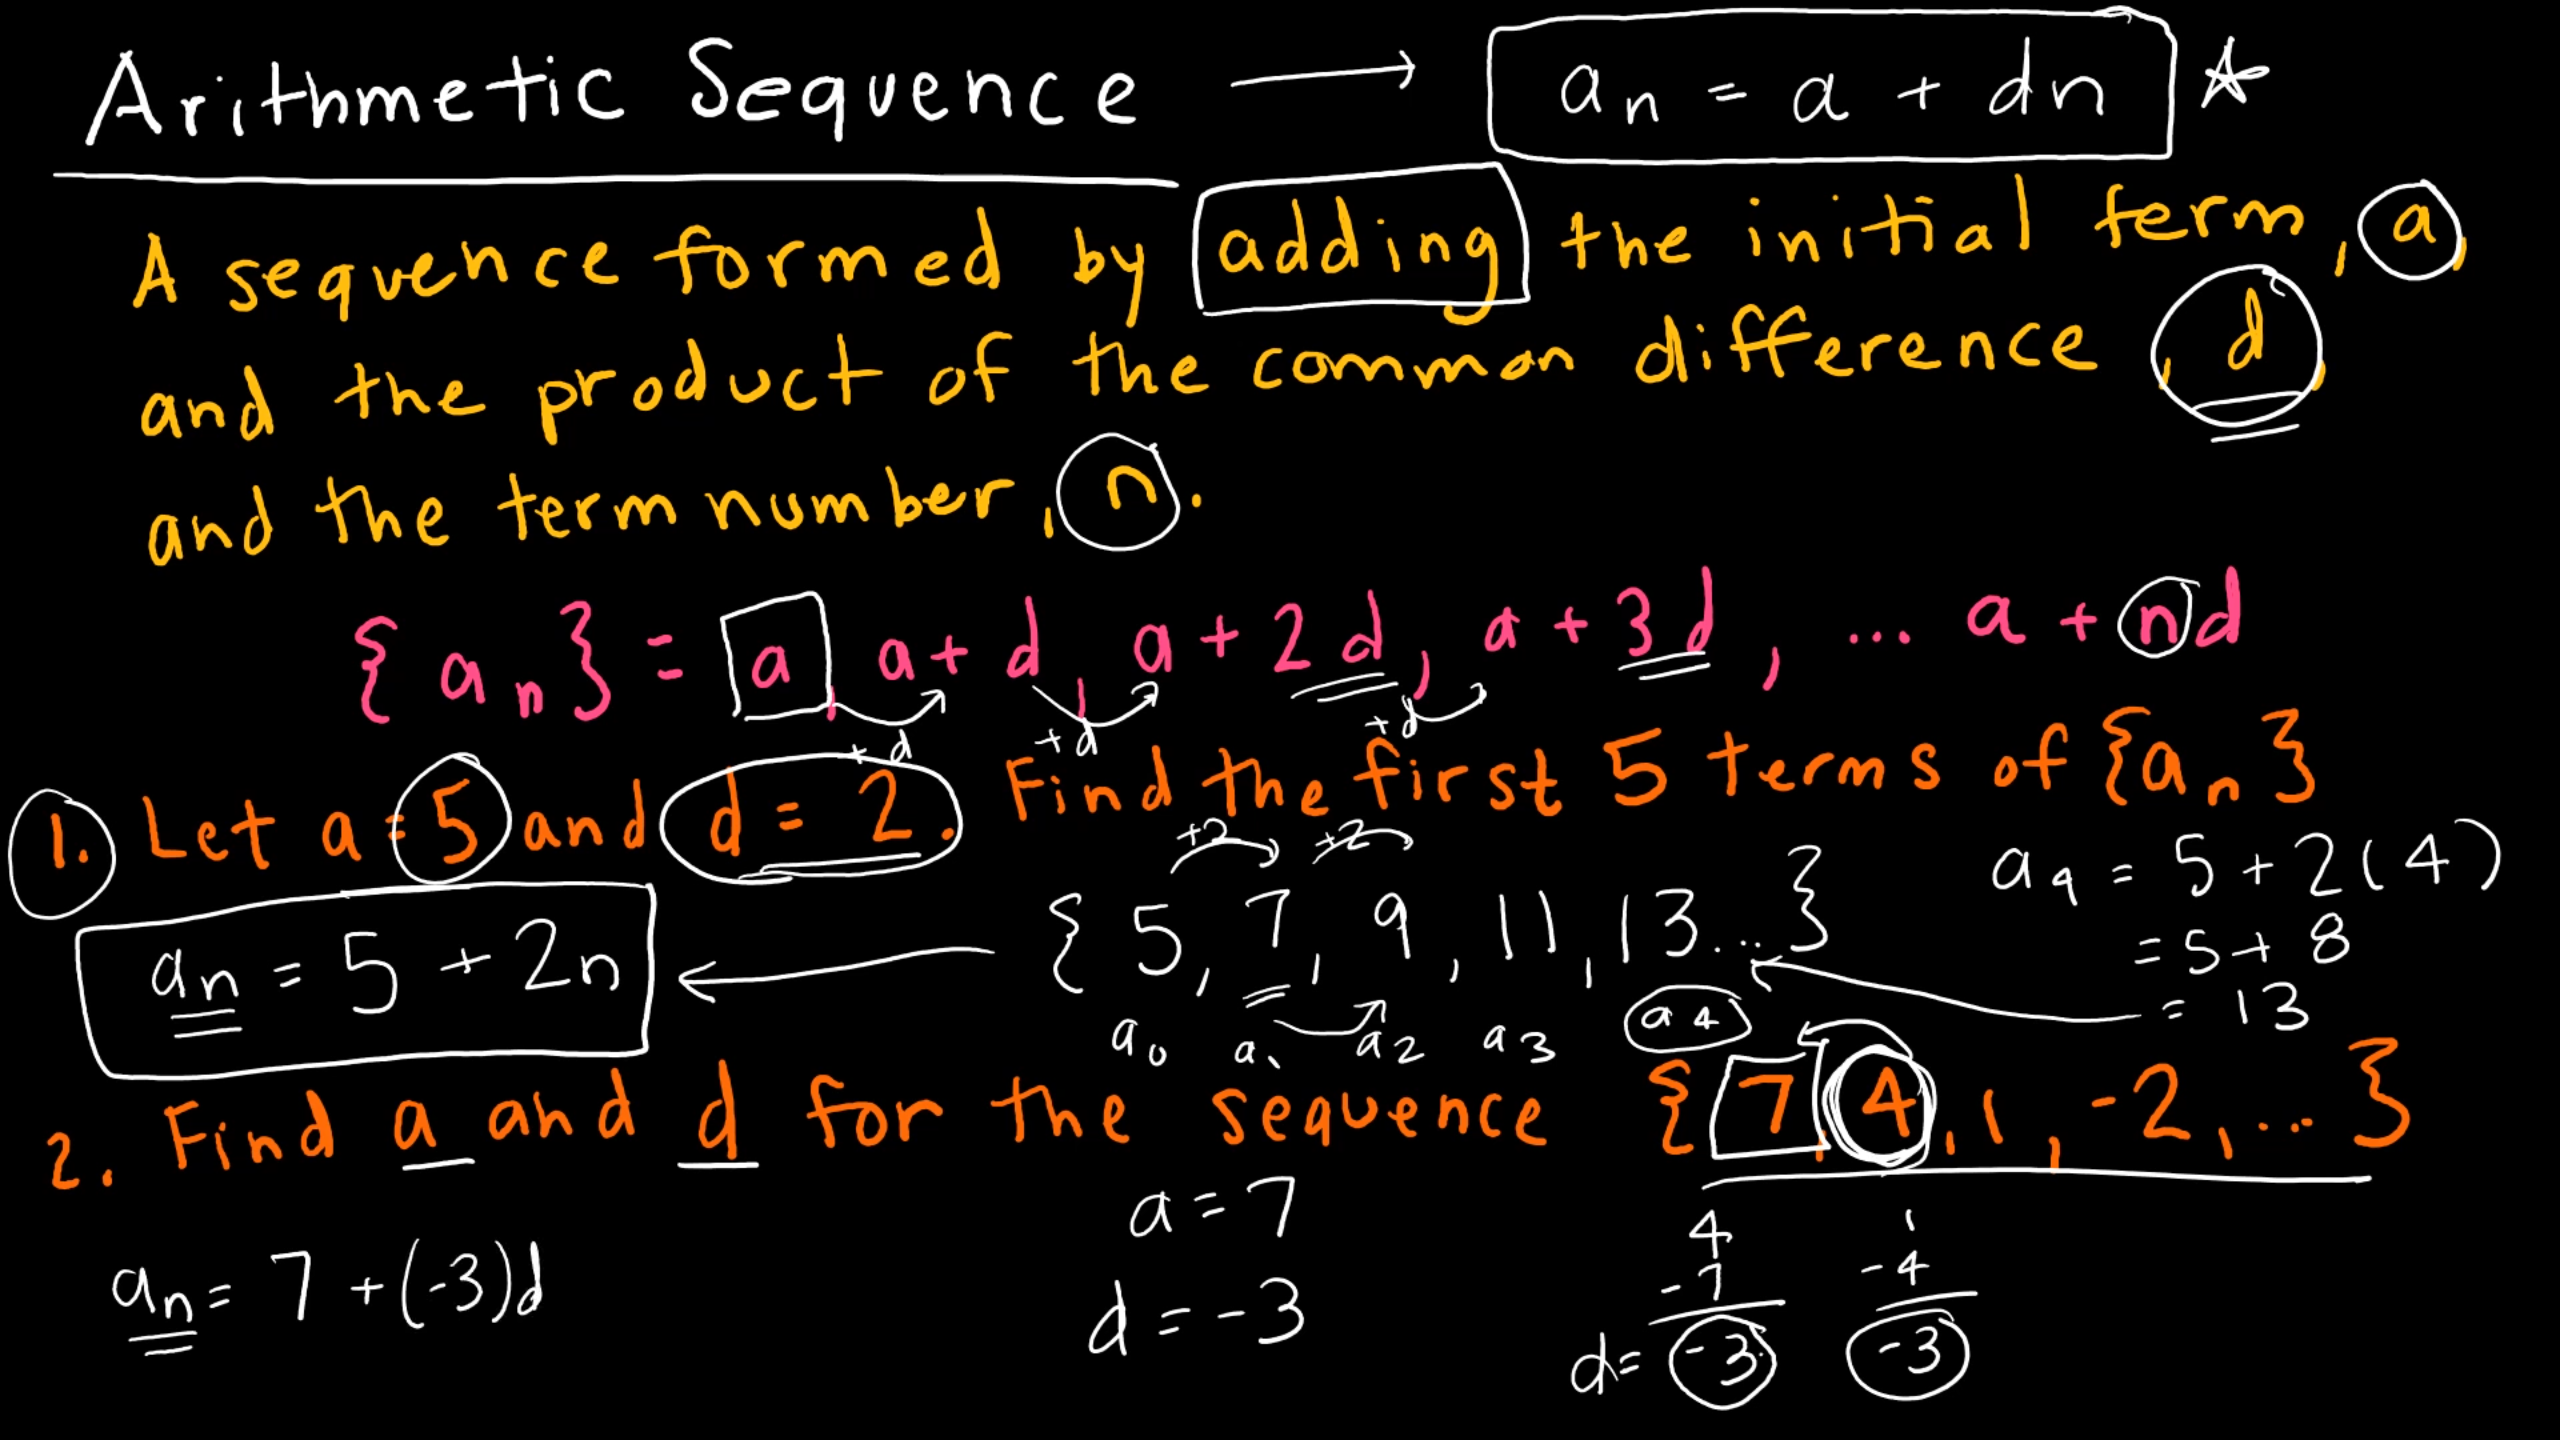 Arithmetic Sequence → aₙ = a + dn ☆
A sequence formed by adding the initial term, a,
and the product of the common difference, d,
and the term number, n.
{aₙ} = a, a + d, a + 2d, a + 3d, ... a + nd
+d +d +d
1. Let a = 5 and d = 2. Find the first 5 terms of {aₙ}
+2 +2
aₙ = 5 + 2n ← { 5, 7, 9, 11, 13... }
a₀ a₁ a₂ a₃ a₄
a₄ = 5 + 2(4)
= 5 + 8
= 13
2. Find a and d for the sequence {7, 4, 1, -2, ...}
aₙ = 7 + (-3)d
a = 7
d = -3
4
-7
d = -3
1
-4
-3